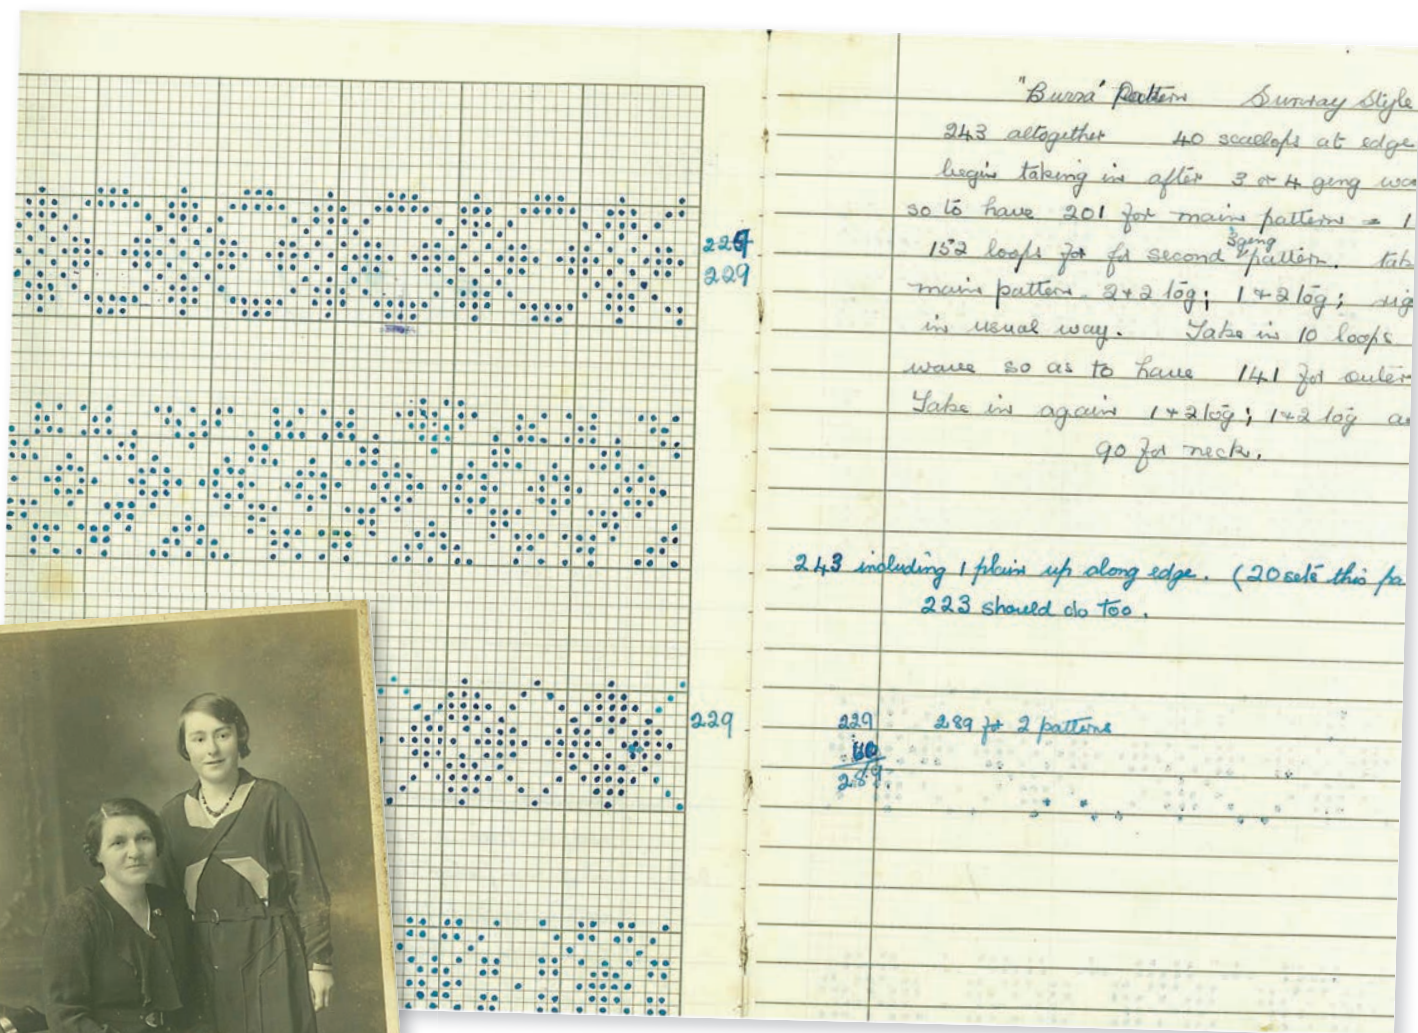 229
229
229
"Burra" Pattern Sunray Style
243 altogether 40 scallops at edge
begin taking in after 3 or 4 geng
so to have 201 for main pattern = 1
152 loops for for second 3 geng pattern.
main pattern. 2+2 tog; 1+2 tog;
in usual way. Take in 10 loops
wave so as to have 141 for outer
Take in again 1+2 tog; 1+2 tog
90 for neck.
243 including 1 plain up along edge. (20 sets this
223 should do too.
229 289 for 2 patterns
60
289